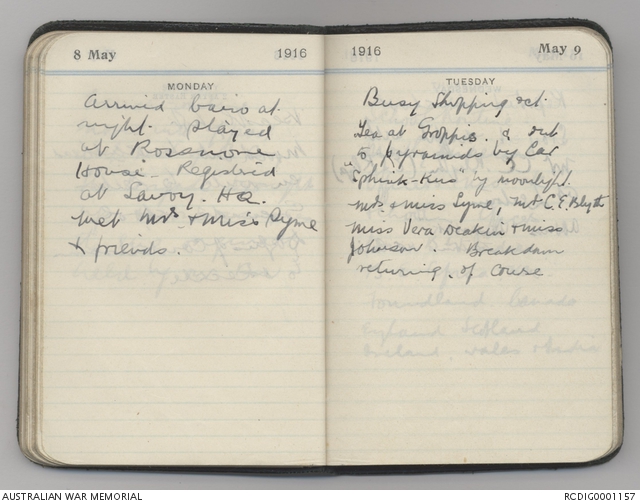 8 May 1916
MONDAY
Arrived Cairo at
night. Stayed
at Rosemore
House. Registered
at Savoy. HQ.
Met Mrs & Miss Syme
& friends.
1916 May 9
TUESDAY
Busy Shopping ect.
Tea at Groppis. & out
to pyramids by Car
by moonlight.
Mrs & Miss Syme, Mr C.E. Blyth
Miss Vera Deakin & Miss
Johnson. Breakdown
returning, of course
AUSTRALIAN WAR MEMORIAL RCDIG0001157